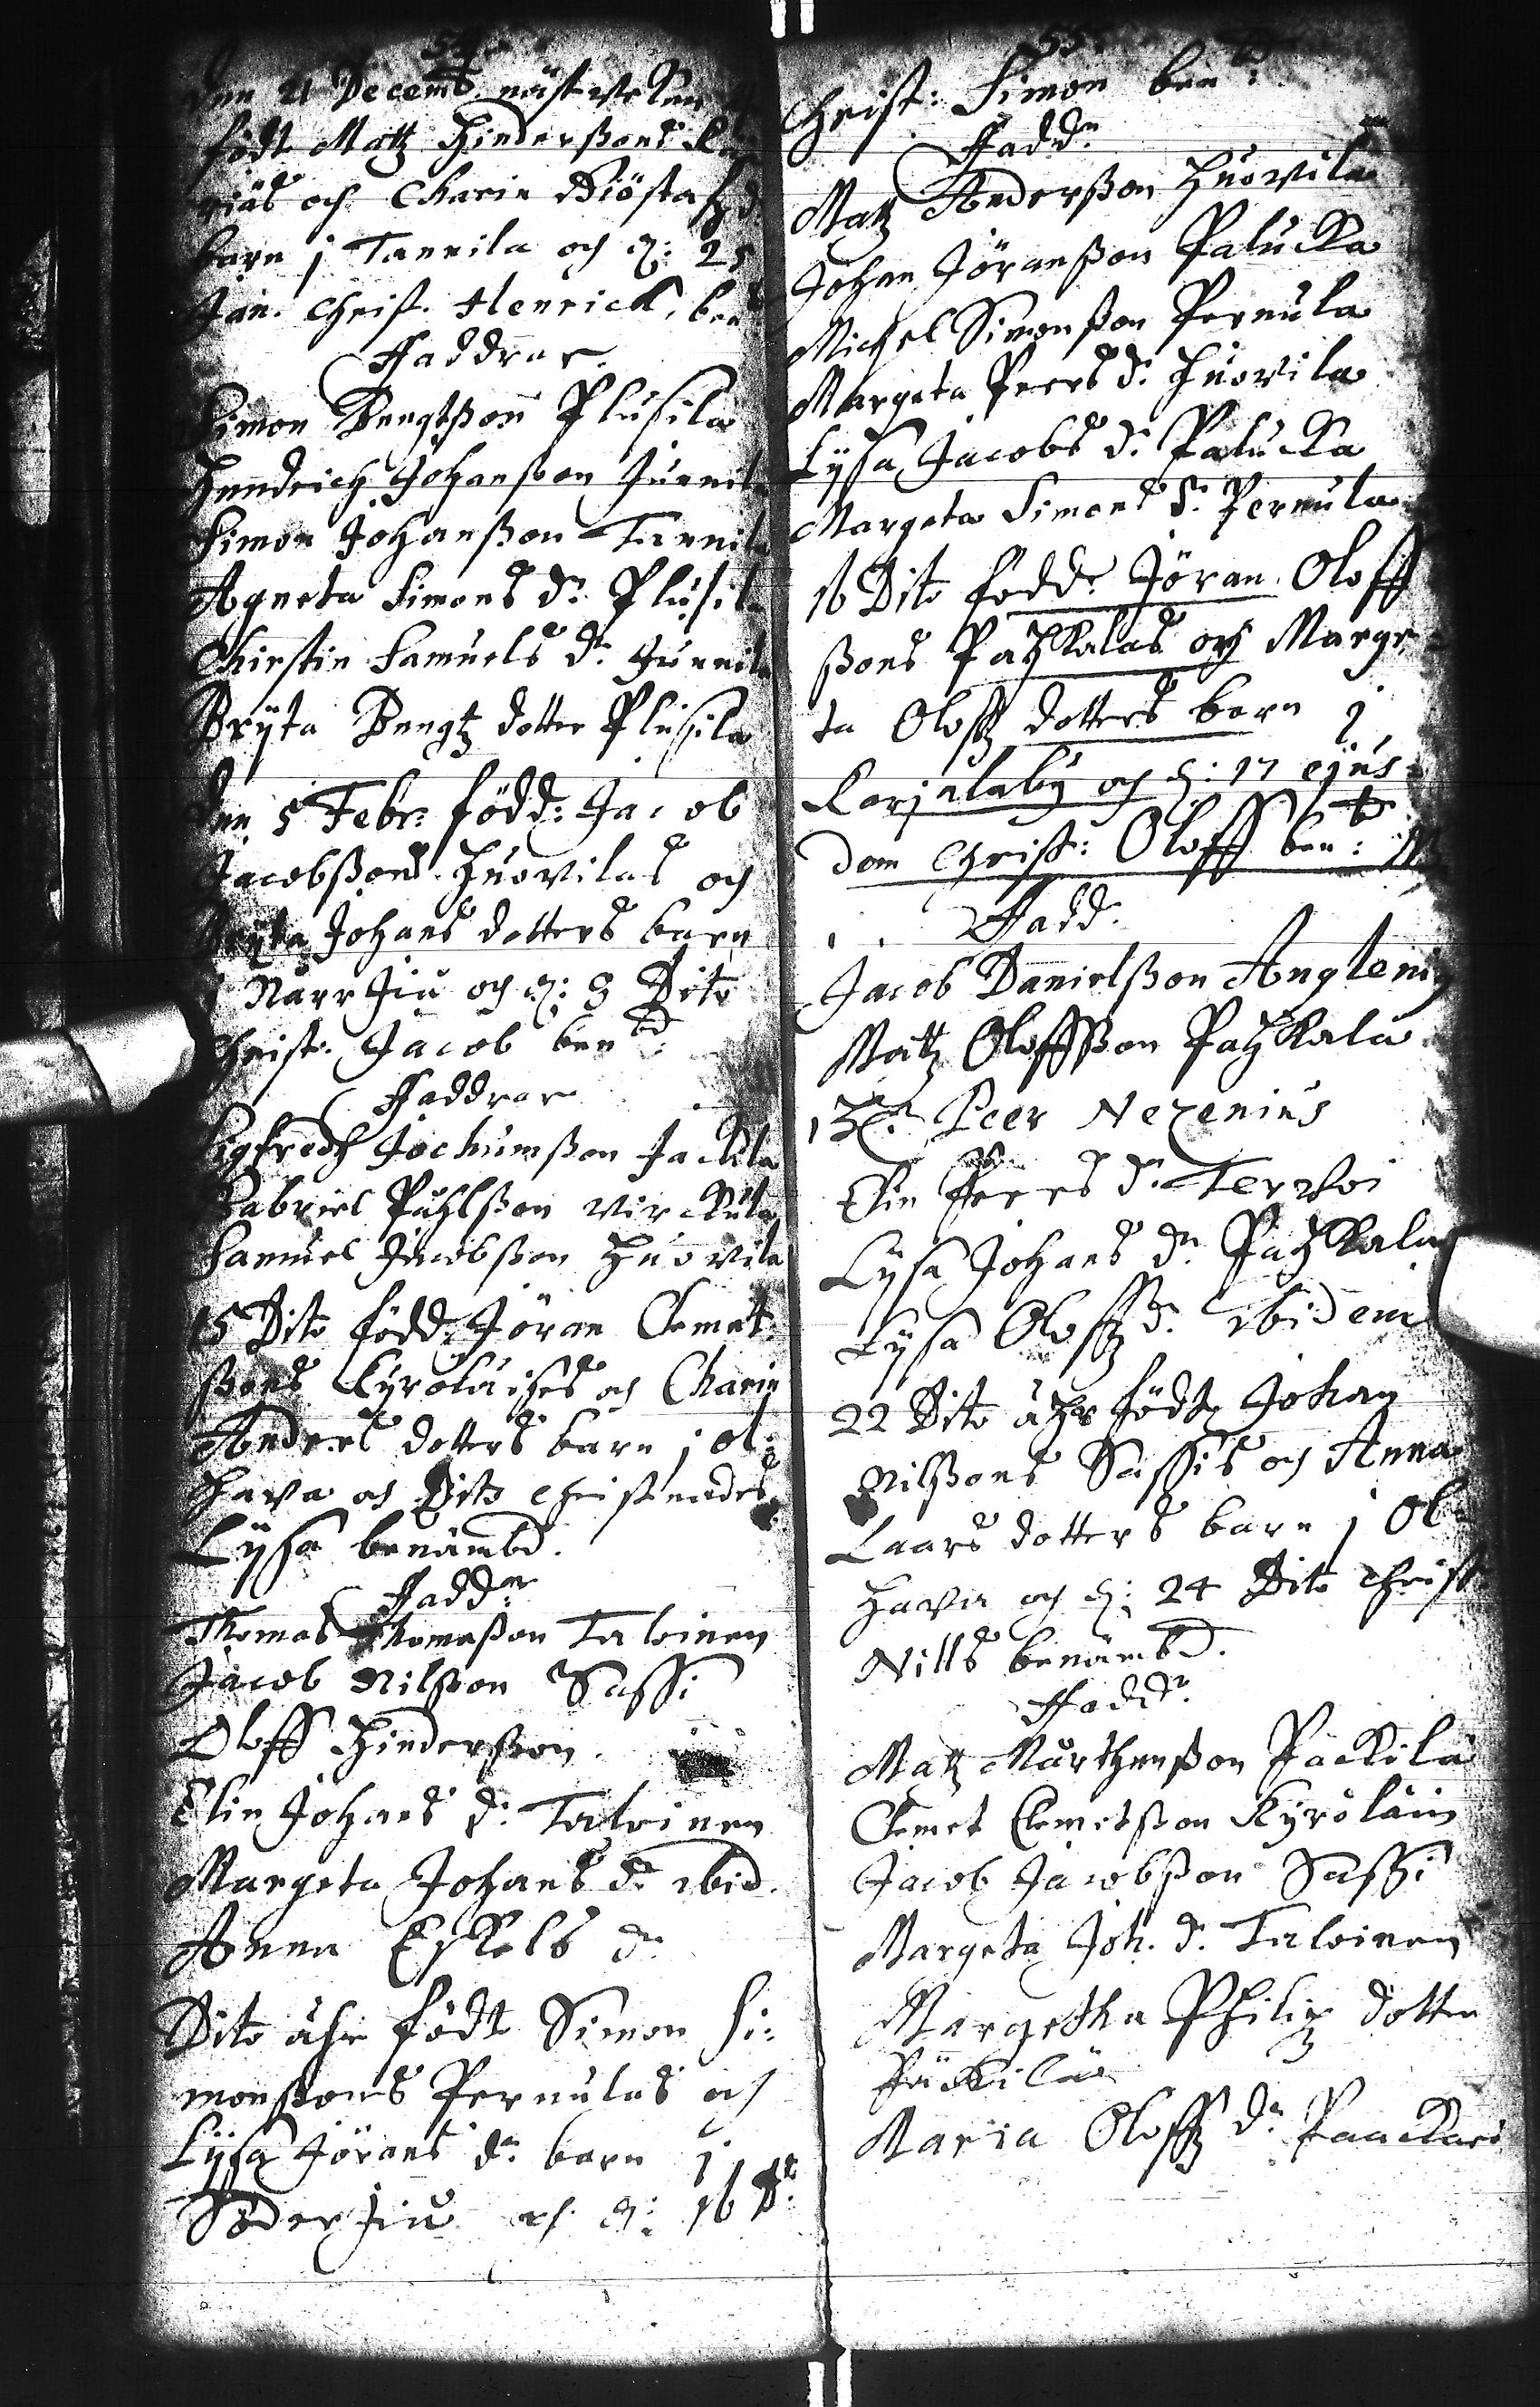 54.
den 21 Decemb. näst
födt Matz Hinderßons
och Charin Giöstafz d.
barn j Tannila och d: 25
Jan. Christ. Henrick, ben
Faddrar.
Simon Bengtßon Plusila
Hendrich Johanßon Junnila
Simon Johanßon Tannila
Agneta Simons dr. Plusila
Chirstin Samuels dr. Junnila
Bryta Bengtz dotter Plusila
den 5 Febr: född: Jacob
Jacobßons Huovilas och
Bryta Johans dotters barn
j Närrjiu och d: 9 Dito
Christ. Jacob benbd.
Faddrar
Sigfredh Jochumßon Jackila
Gabriel Påhlßon Virckula
Samuel Jacobßon Huovila
15 Dito född: Jöran Clemet-
ßons Kyroläises och Charin
Anders dotters barn j Ol-
hava och Dito christnades
Lysa benämbd.
Faddr:
Thomas Thomaßon Talvinen
Jacob Nilßon Sassi
Oloff Hinderßon.
Elin Johans dr. Talvinen
Margeta Johans dr. ibid.
Anna Eskels dr.
Dito åhr födt Simon Si-
monßons Pernulas och
Lysa Jörans dr. barn j
Söderjiu och d: 16 D:
55.
Christ: Simon ben:
Faddr.
Matz Anderßon Huovila
Johan Jöranßon Palucka
Michel Simonßon Pernula
Margeta Peers dr. Huovila
Lysa Jacobs dr. Palucka
Margeta Simons dr. Pernula
16 Dito född: Jöran Oloff
ßons Patzkalas och Marge-
ta Oloffz dotters barn j
Karjalaby och d: 17 ejus-
dem Christ: Oloff ben:
Fadd.
Jacob Danielßon Anglenig
Matz Oloffßon Patzkala
H:r Peer Nezenius
Elin Peers dr. Tervoi
Lysa Johans dr. Patzkala
Lysa Oloffz dr. ibidem
22 Dito åhr födt Johan
Nilßons Sassis och Anna
Laars dotters barn j Ol-
hava och d: 24 Dito Christ
Nills benämbd.
Faddr.
Matz Mårthenßon Päckilä
Clemet Clemetßon Kyröläin
Jacob Jacobßon Sassi
Margeta Joh. dr. Talvinen
Margetha Philipz dotter
Päckilä
Maria Oloffz dr. Paackari